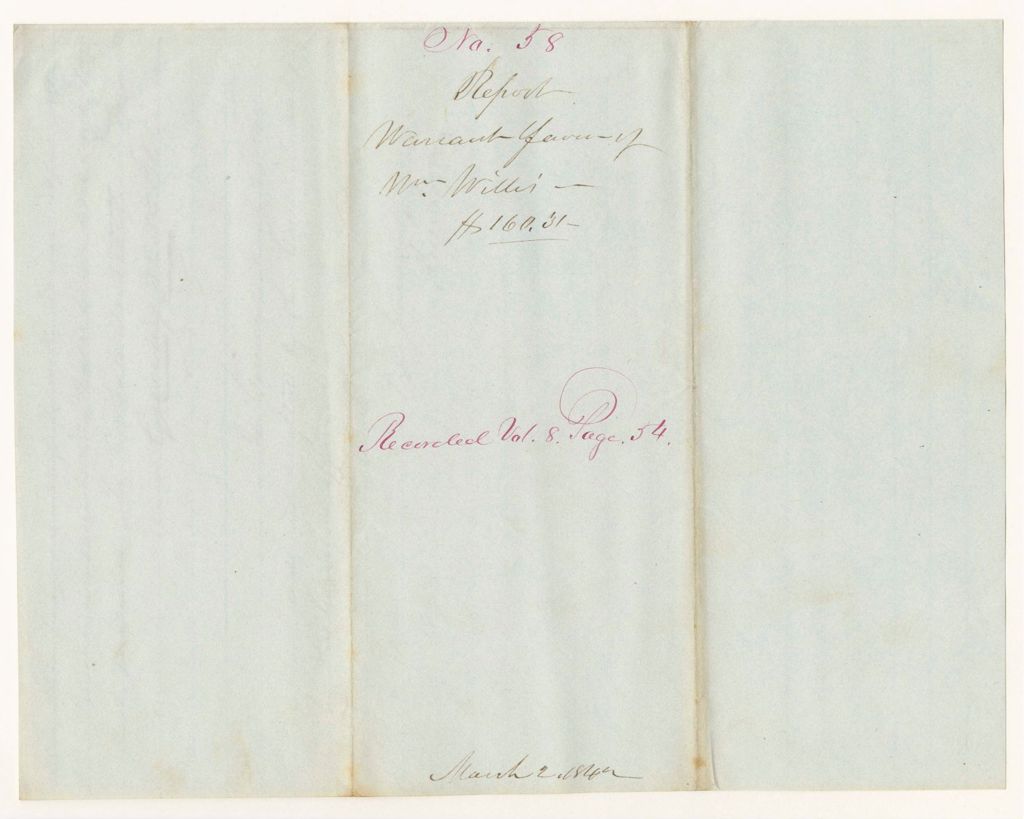 No. 58
Report
Warrant favor of
Wm. Willis —
$160.31
Recorded Vol. 8. Page. 54.
March 2. 1842